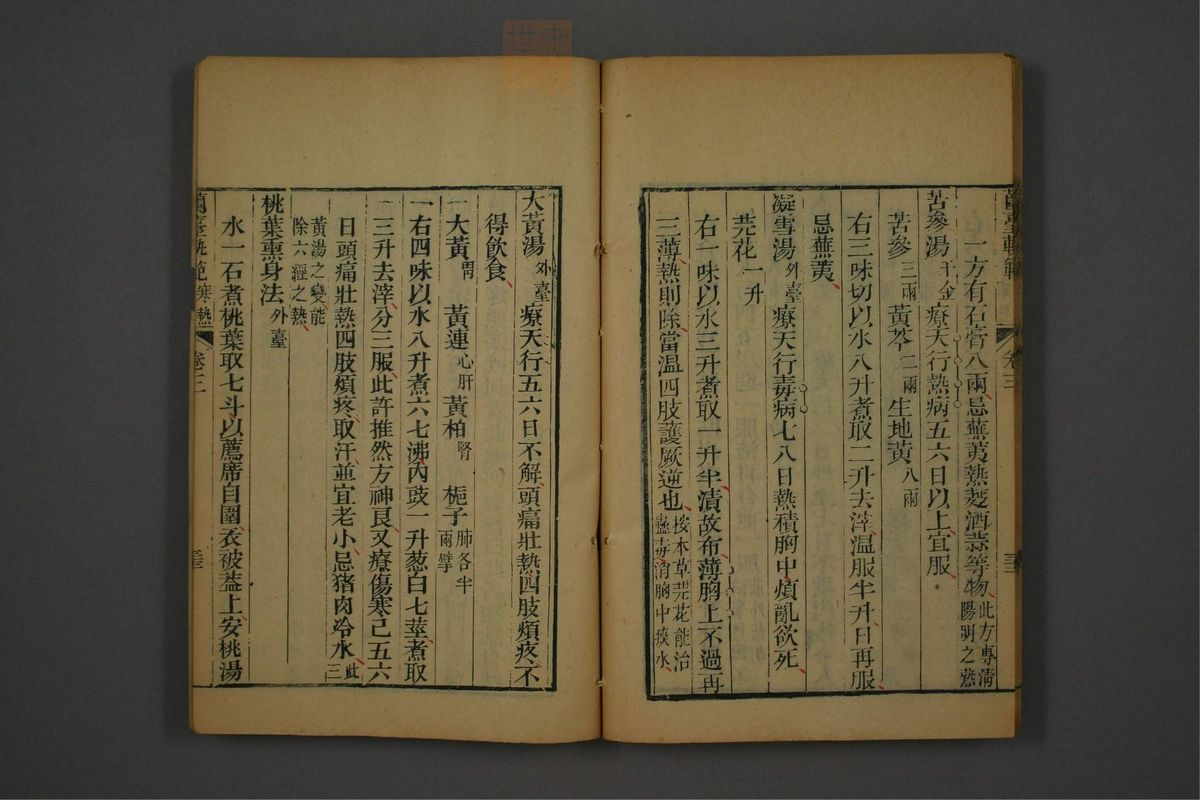 蘭臺軌範 卷三 三
一方有石膏八兩忌蕪荑熱麪酒蒜等物此方專清陽明之熱
苦參湯千金療天行熱病五六日以上宜服
苦參三兩 黃芩二兩 生地黃八兩
右三味切以水八升煮取二升去滓溫服半升日再服
忌蕪荑
凝雪湯外臺療天行毒病七八日熱積胸中煩亂欲死
芫花一升
右一味以水三升煮取一升半漬故布薄胸上不過再
三薄熱則除當溫四肢護厥逆也按本草芫花能治蠱毒消胸中痰水
大黃湯外臺療天行五六日不解頭痛壯熱四肢煩疼不
得飲食
大黃胃 黃連心肝 黃柏腎 梔子肺各半兩擘
右四味以水八升煮六七沸內豉一升葱白七莖煮取
三升去滓分三服此許推然方神良又療傷寒已五六
日頭痛壯熱四肢煩疼取汗並宜老小忌猪肉冷水此三
黃湯之變能除六經之熱
桃葉熏身法外臺
水一石煮桃葉取七斗以薦席自圍衣被蓋上安桃湯
蘭臺軌範 寒熱 卷三 三